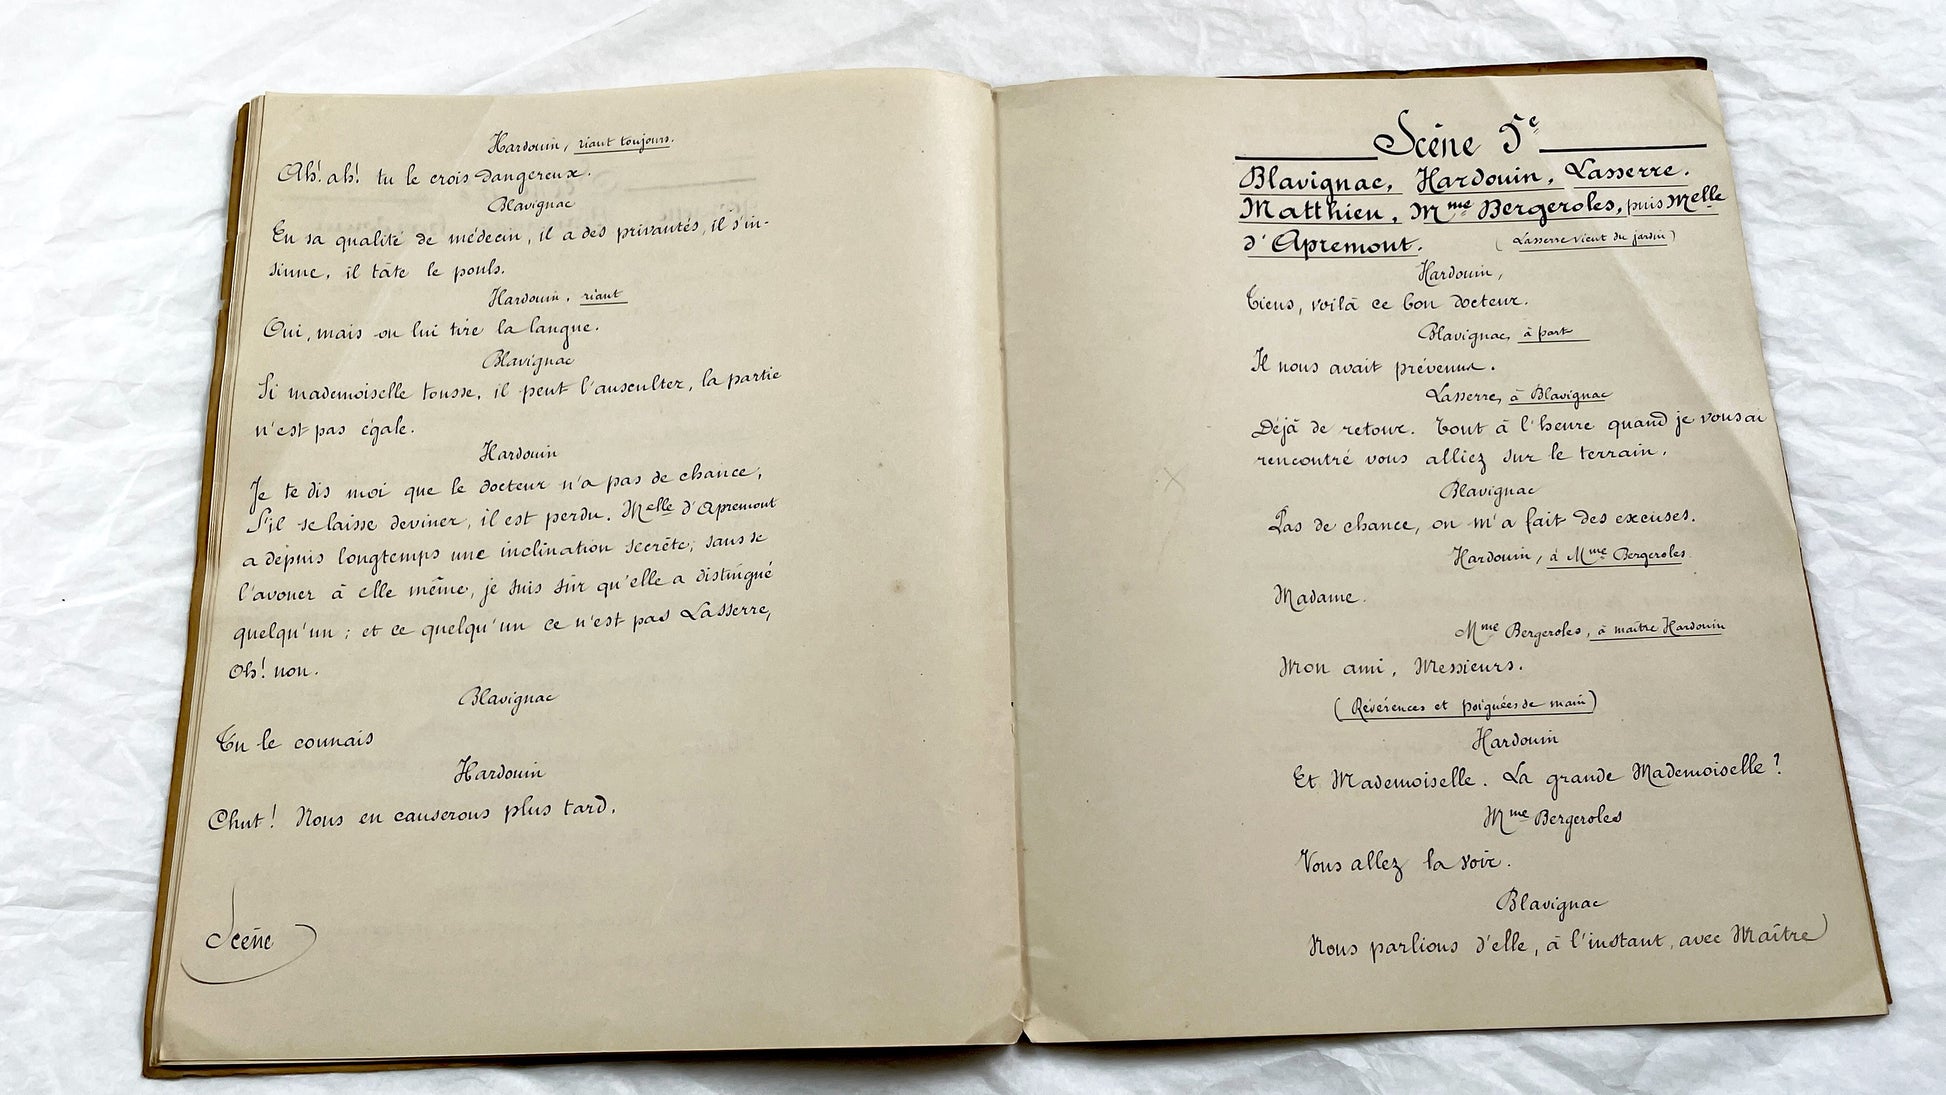 Hardouin, riant toujours.
Ah! ah! tu le crois dangereux.
Blavignac
En sa qualité de médecin, il a des privautés, il s'in-
sinue, il tâte le pouls.
Hardouin, riant
Oui, mais on lui tire la langue.
Blavignac
Si mademoiselle tousse, il peut l'ausculter, la partie
n'est pas égale.
Hardouin
Je te dis moi que le docteur n'a pas de chance,
S'il se laisse deviner, il est perdu. Melle d'Apremont
a depuis longtemps une inclination secrète; sans se
l'avouer à elle même, je suis sûr qu'elle a distingué
quelqu'un; et ce quelqu'un ce n'est pas Lasserre,
Oh! non.
Blavignac
Tu le connais
Hardouin
Chut! Nous en causerons plus tard.
Scène
Scène 5e
Blavignac, Hardouin, Lasserre.
Matthieu, Mme Bergeroles, puis Melle
d'Apremont. (Lasserre vient du jardin)
Hardouin,
Tiens, voilà ce bon docteur.
Blavignac, à part
Il nous avait prévenus.
Lasserre, à Blavignac
Déjà de retour. Tout à l'heure quand je vous ai
rencontré vous alliez sur le terrain.
Blavignac
Pas de chance, on m'a fait des excuses.
Hardouin, à Mme Bergeroles.
Madame.
Mme Bergeroles, à maître Hardouin
Mon ami, Messieurs.
(Révérences et poignées de main)
Hardouin
Et Mademoiselle. La grande Mademoiselle?
Mme Bergeroles
Vous allez la voir.
Blavignac
Nous parlions d'elle, à l'instant, avec Maître